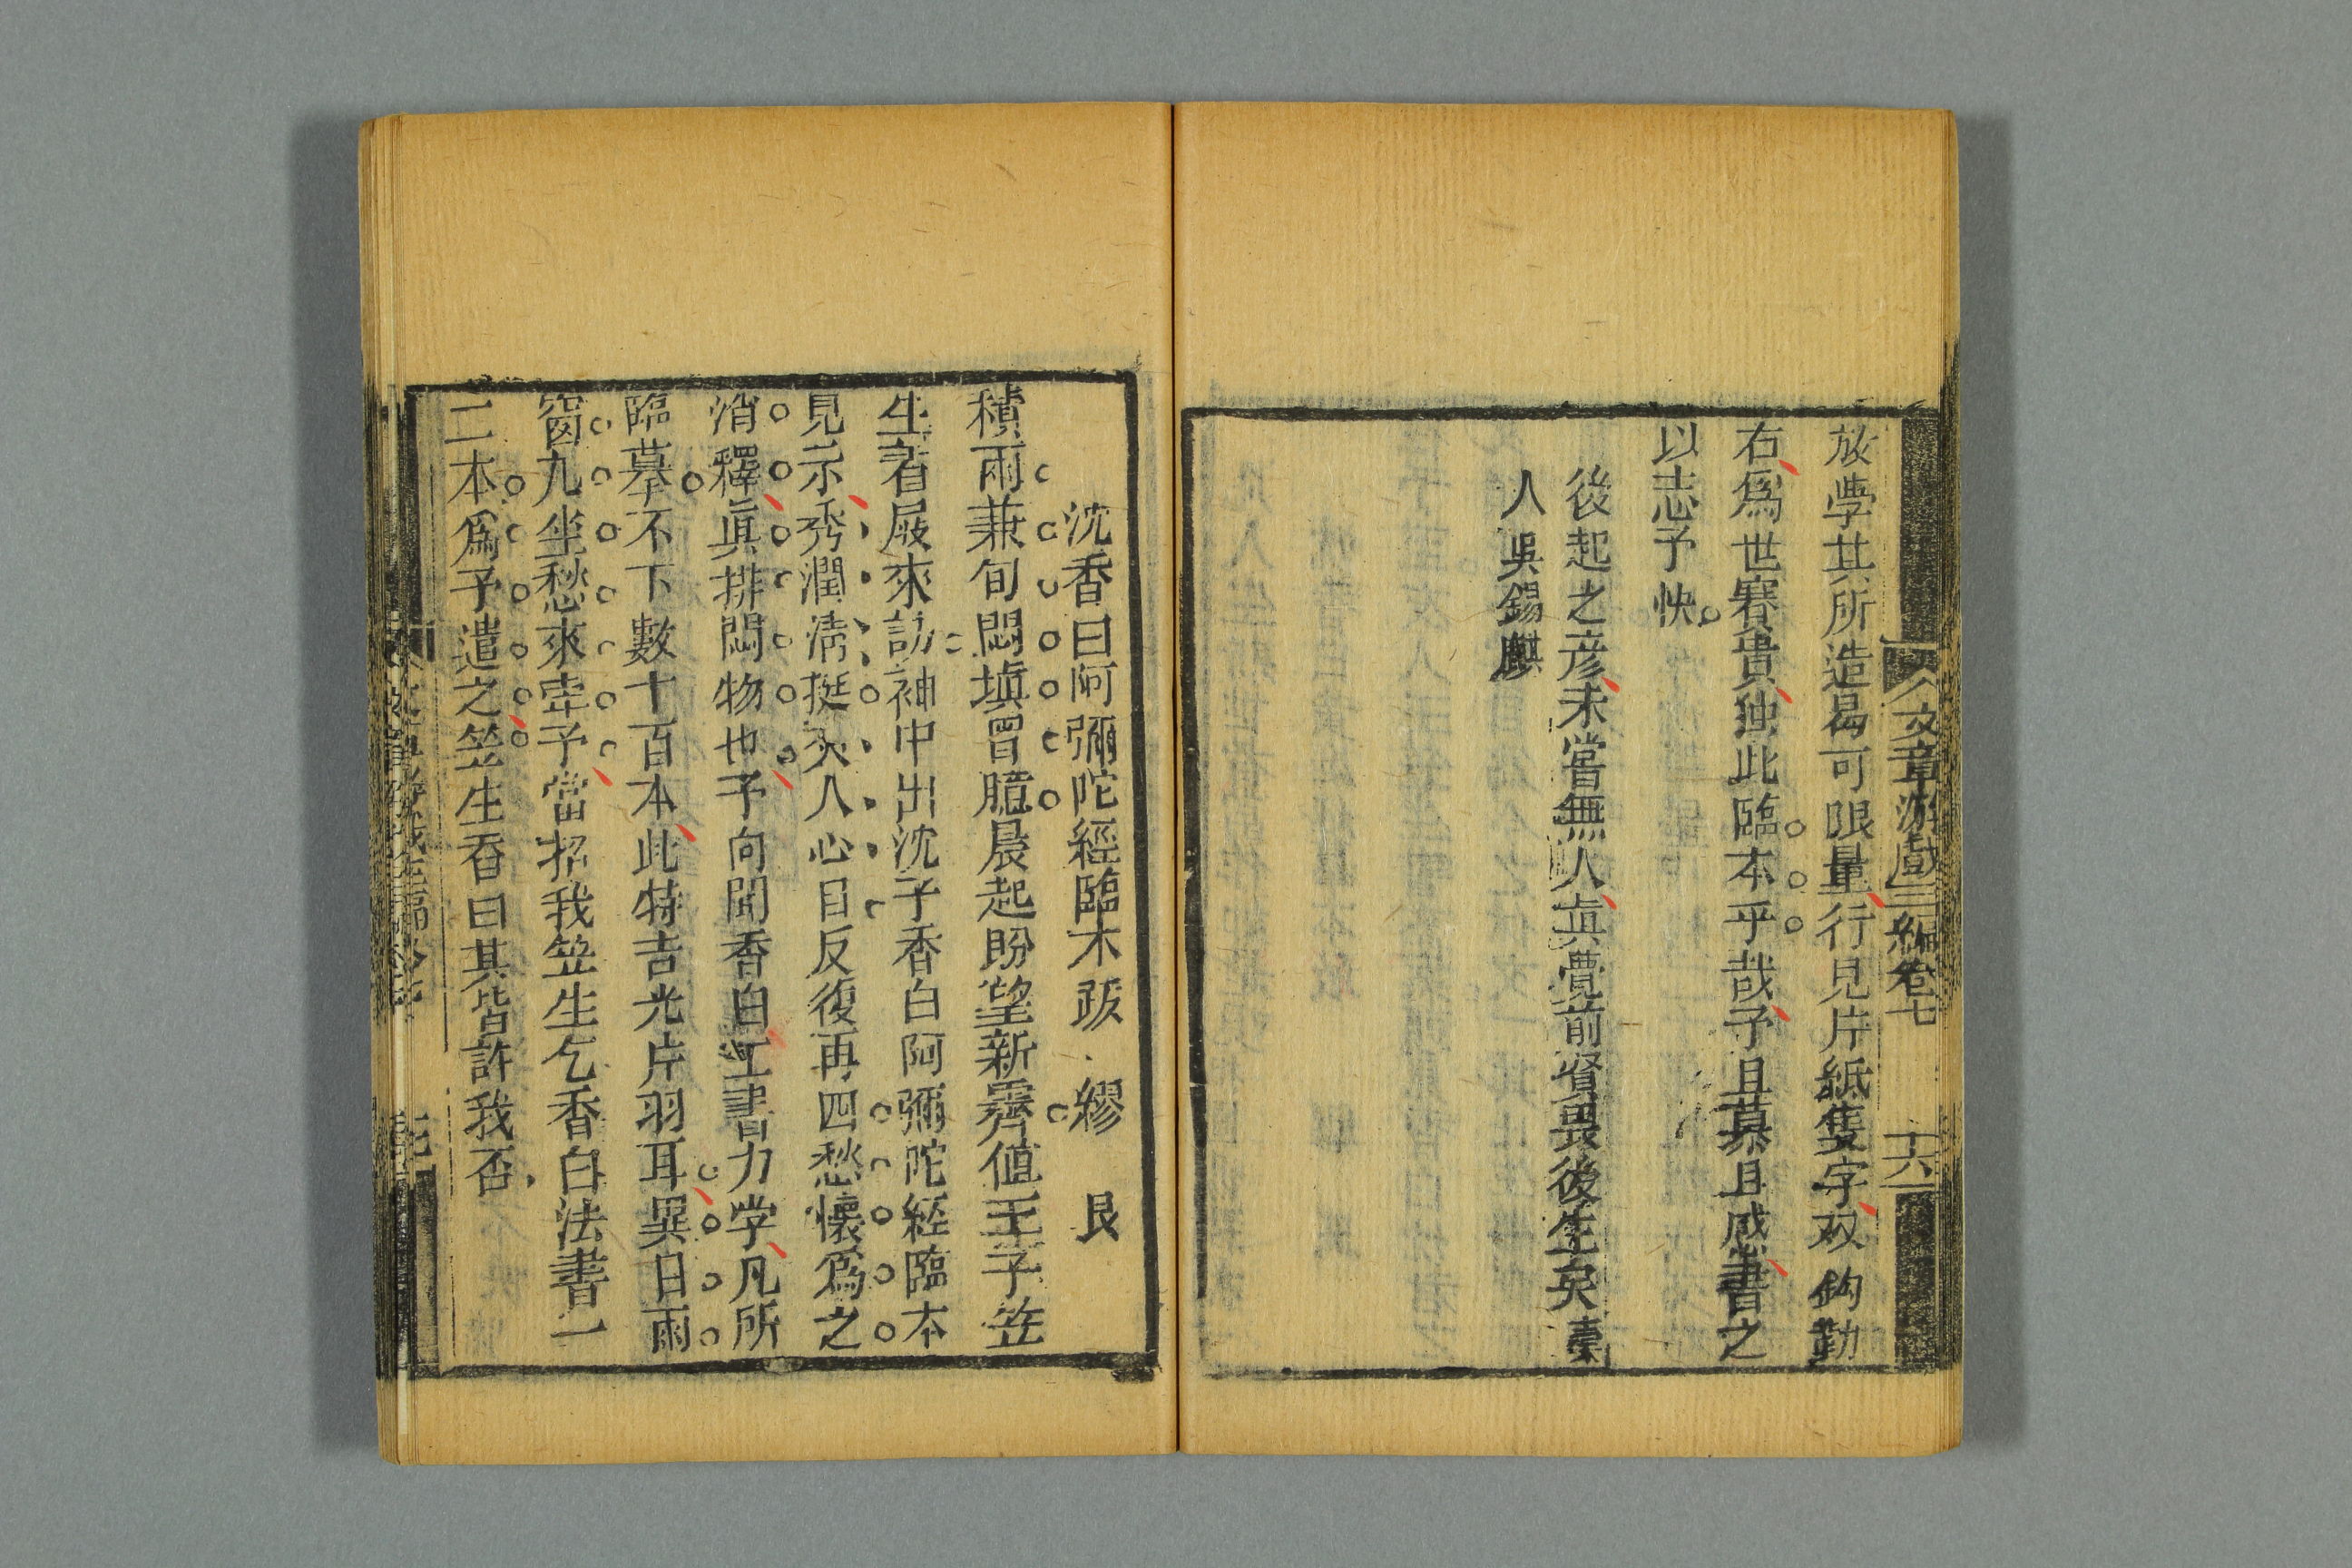 文章游戲三編卷七 十六
放學其所造曷可限量行見片紙隻字双鈎勒
右爲世寶貴独此臨本乎哉予且慕且感書之
以志予快
後起之彦未嘗無人眞覺前賢畏後生矣
人吳錫麒
沈香曰阿彌陀經臨本跋 繆艮
積雨兼旬悶塡胷臆晨起盼望新霽值王子笠
生着屐來訪袖中出沈子香白阿彌陀経臨本
見示秀潤清挺人心目反復再四愁懷爲之
消釋眞排悶物也予向聞香白工書力学凡所
臨摹不下數十百本此特吉光片羽耳異日雨
窗九坐愁來牽予當招我笠生乞香白法書一
二本爲予遣之笠生香曰其皆許我否